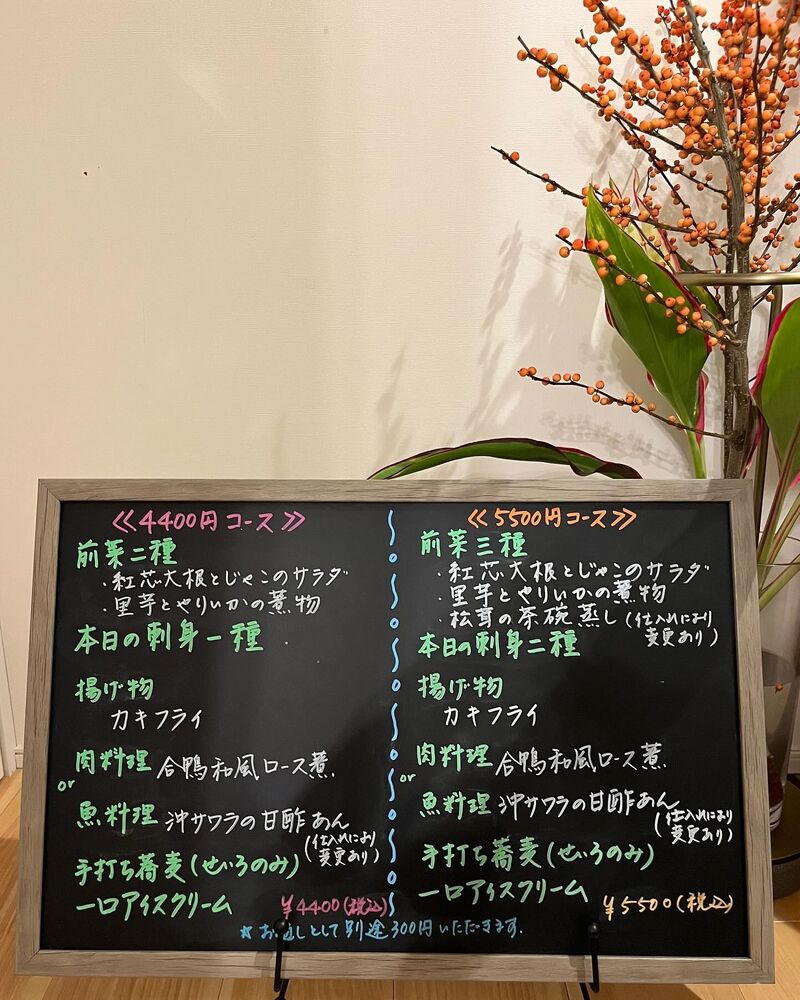 ≪4400円コース≫
前菜二種
・紅芯大根とじゃこのサラダ
・里芋とやりいかの煮物
本日の刺身一種
揚げ物
カキフライ
肉料理 合鴨和風ロース煮
or
魚料理 沖サワラの甘酢あん
(仕入れにより
変更あり)
手打ち蕎麦(せいろのみ)
一口アイスクリーム
¥4400(税込)
≪5500円コース≫
前菜三種
・紅芯大根とじゃこのサラダ
・里芋とやりいかの煮物
・松茸の茶碗蒸し(仕入れにより
変更あり)
本日の刺身二種
揚げ物
カキフライ
肉料理 合鴨和風ロース煮
or
魚料理 沖サワラの甘酢あん
(仕入れにより
変更あり)
手打ち蕎麦(せいろのみ)
一口アイスクリーム
¥5500(税込)
☆お通しとして別途300円いただきます。